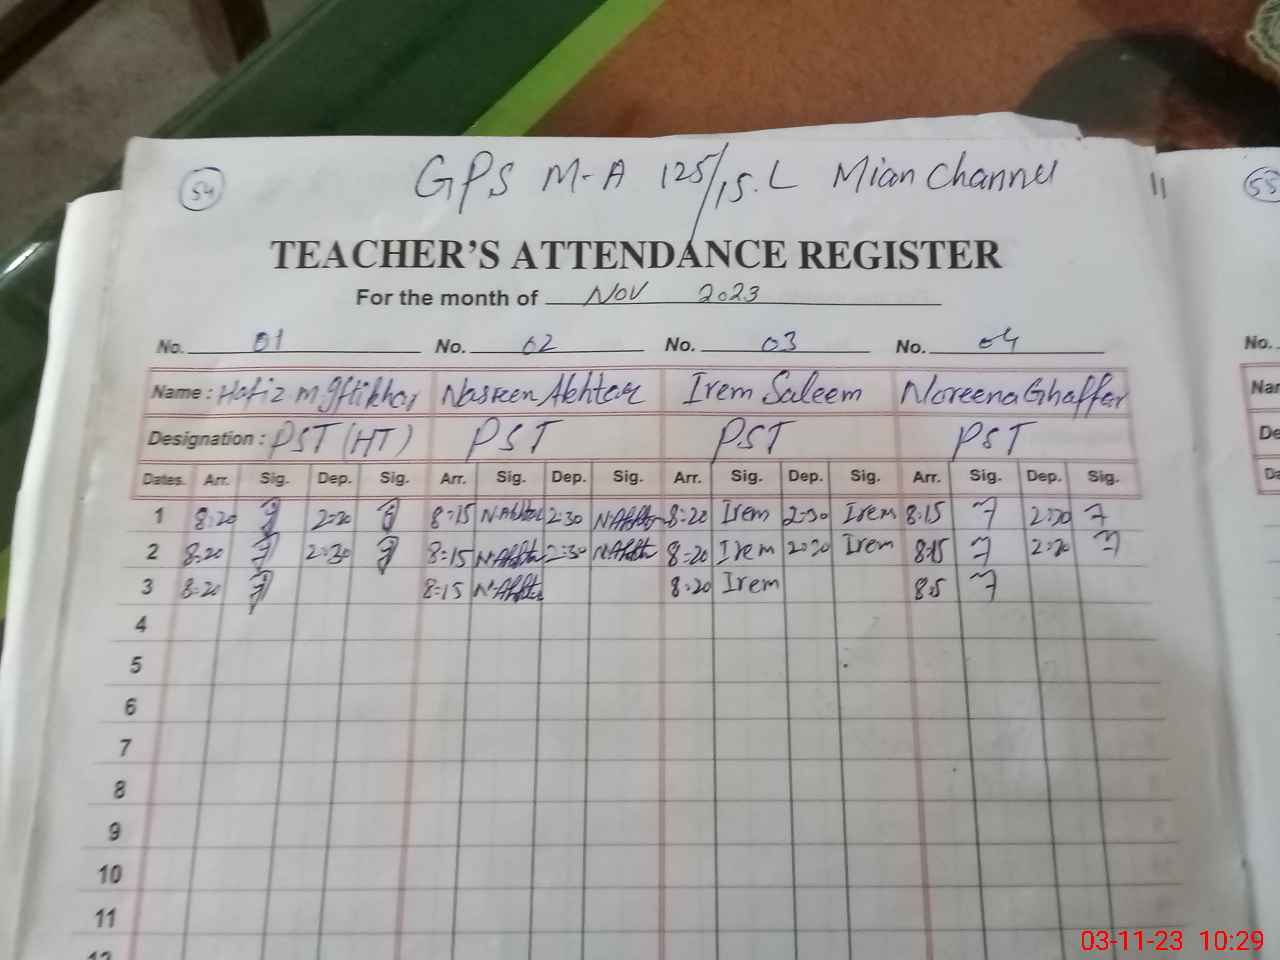 54
GPS M-A 125/15.L Mian Channu
11
55
TEACHER'S ATTENDANCE REGISTER
For the month of Nov 2023
No. 01 No. 02 No. 03 No. 04 No.
Name : Hafiz M. Iftikhar Nasreen Akhtar Irem Saleem Noreena Ghaffar Nar
Designation : PST (HT) PST PST PST De
Dates. Arr. Sig. Dep. Sig. Arr. Sig. Dep. Sig. Arr. Sig. Dep. Sig. Arr. Sig. Dep. Sig. Da
1 8:20 2:30 8=15 N.Akhtar 2:30 N.Akhtar 8=20 Irem 2=30 Irem 8:15 2:30
2 8:20 2:30 8=15 N.Akhtar 2=30 N.Akhtar 8=20 Irem 2=30 Irem 8:15 2:30
3 8:20 8=15 N.Akhtar 8:20 Irem 8:5
4
5
6
7
8
9
10
11
12
03-11-23 10:29